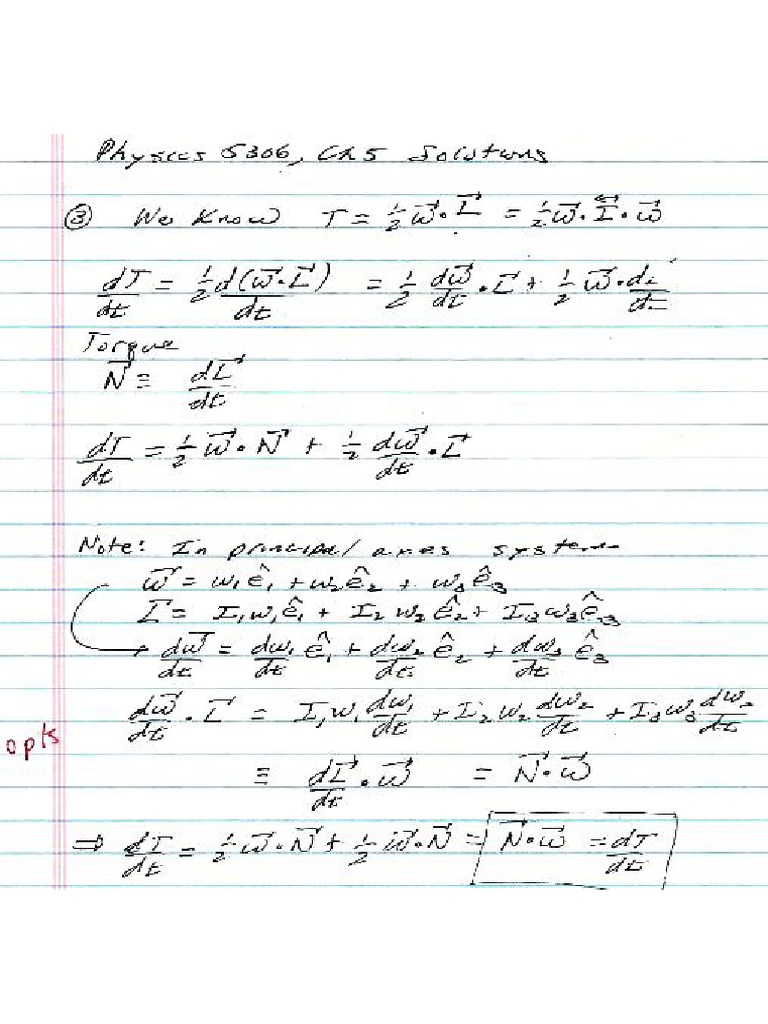 Physics 5306, Ch 5 Solutions
③ We know T = ½ω⃗·L⃗ = ½ω⃗·I⃡·ω⃗
dT/dt = ½ d(ω⃗·L⃗)/dt = ½ dω⃗/dt · L⃗ + ½ ω⃗·
Torque
N⃗ ≡ dL⃗/dt
dT/dt = ½ ω⃗·N⃗ + ½ dω⃗/dt · L⃗
Note: In principal axes system
ω⃗ = ω₁ê₁ + ω₂ê₂ + ω₃ê₃
L⃗ = I₁ω₁ê₁ + I₂ω₂ê₂ + I₃ω₃ê₃
dω⃗/dt = dω₁/dt ê₁ + dω₂/dt ê₂ + dω₃/dt ê₃
dω⃗/dt · L⃗ = I₁ω₁ dω₁/dt + I₂ω₂ dω₂/dt + I₃ω₃
opts
≡ dL⃗/dt · ω⃗ = N⃗·ω⃗
⇒ dT/dt = ½ω⃗·N⃗ + ½ω⃗·N⃗ = N⃗·ω⃗ = dT/dt